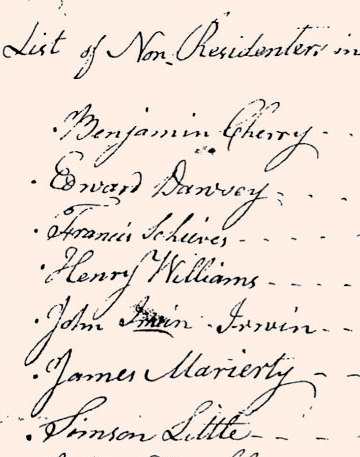 List of Non Residenters in
Benjamin Cherry
Edward Dawvey
Francis Schieves
Henry Williams
John Irwin
James Marierty
Simson Little